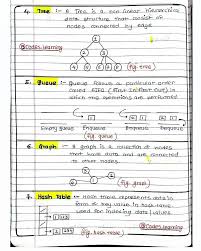 4. Tree :- A Tree is a non linear hierarchical
data structure that consist of
nodes connected by edge.
@Codes.learning
(fig: tree)
5. Queue :- Queue follows a particular order
called FIFO (First In First Out) in
which the operations are performed
Empty Queue Enqueue Enqueue Dequeue
(fig: Queue)
6. Graph :- A graph is a collection of nodes
that have data and are connected
to other nodes.
(fig: graph)
7. Hash Table :- Hash table represents data in
form of key value in task-table
used for indexing data/values
@Codes.learning
(fig: hash table)